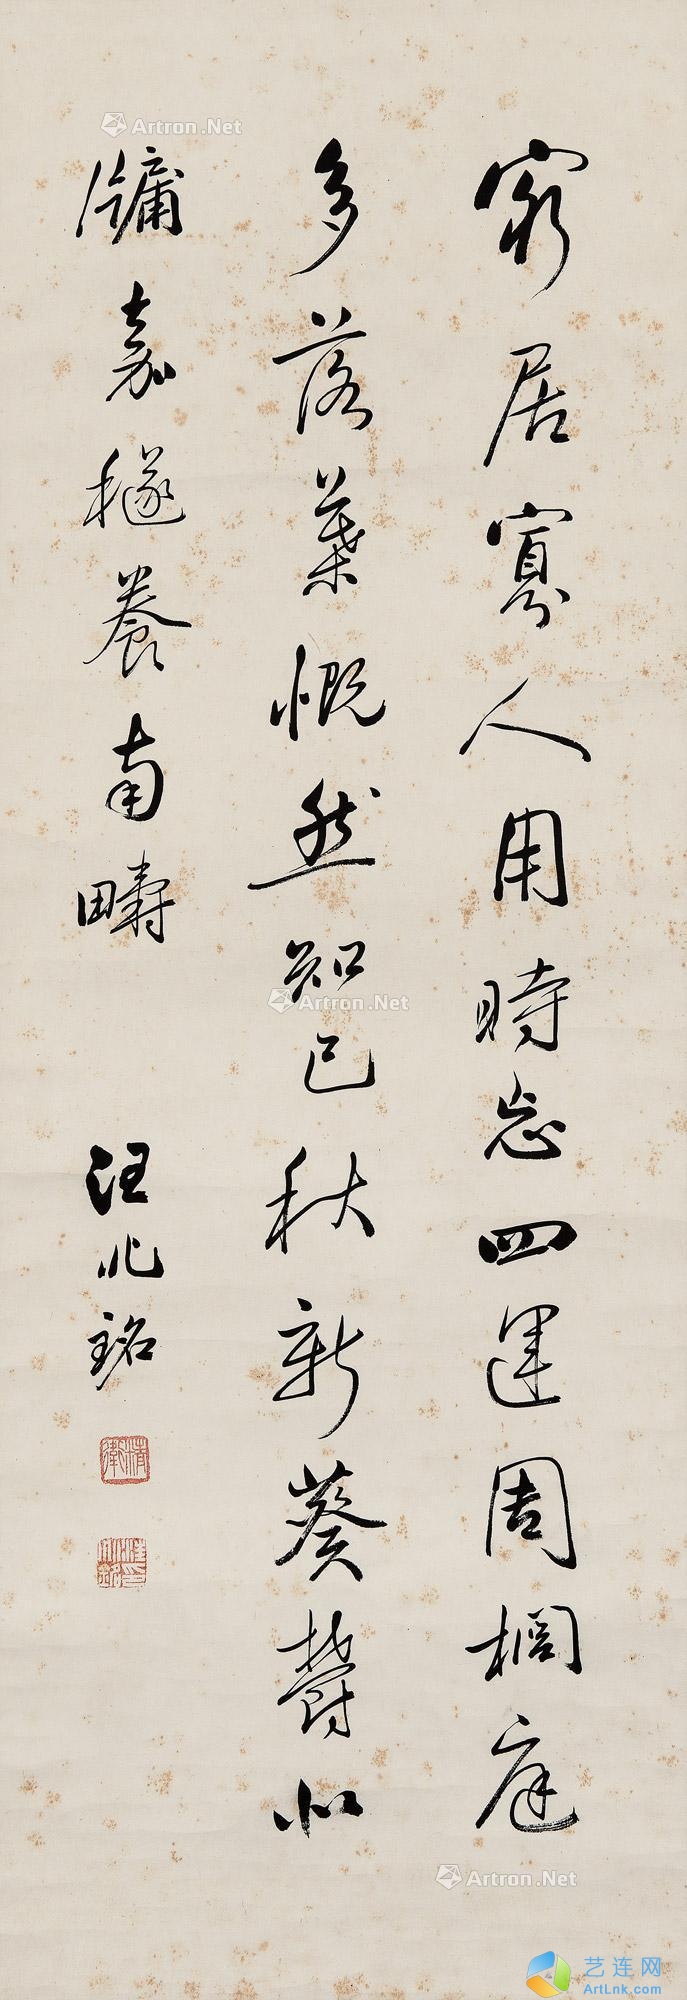 窮居寡人用時忘四運周櫚庭
多落葉慨然知已秋新葵鬱北
牖嘉穟養南疇
汪兆銘
精衛
汪兆銘印
Artron.Net
Artron.Net
Artron.Net
艺连网
ArtLnk.com